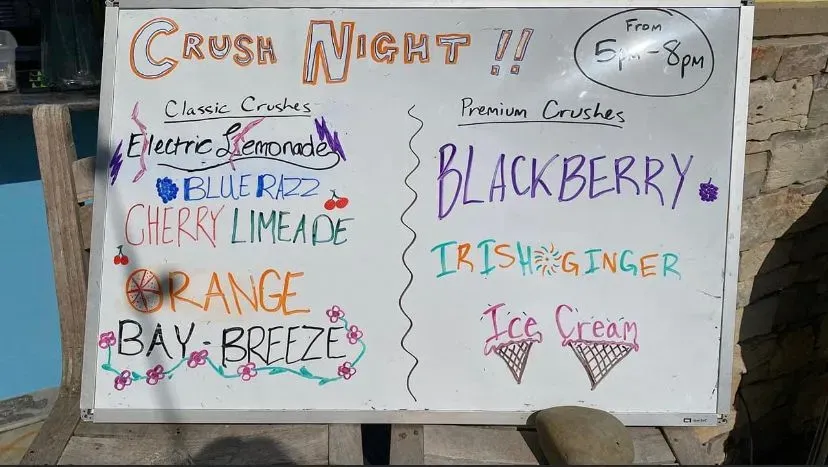 CRUSH NIGHT!!
FROM
5pm-8pm
Classic Crushes
Electric Lemonade
BLUE RAZZ
CHERRY LIMEADE
ORANGE
BAY-BREEZE
Premium Crushes
BLACKBERRY
IRISH GINGER
Ice Cream